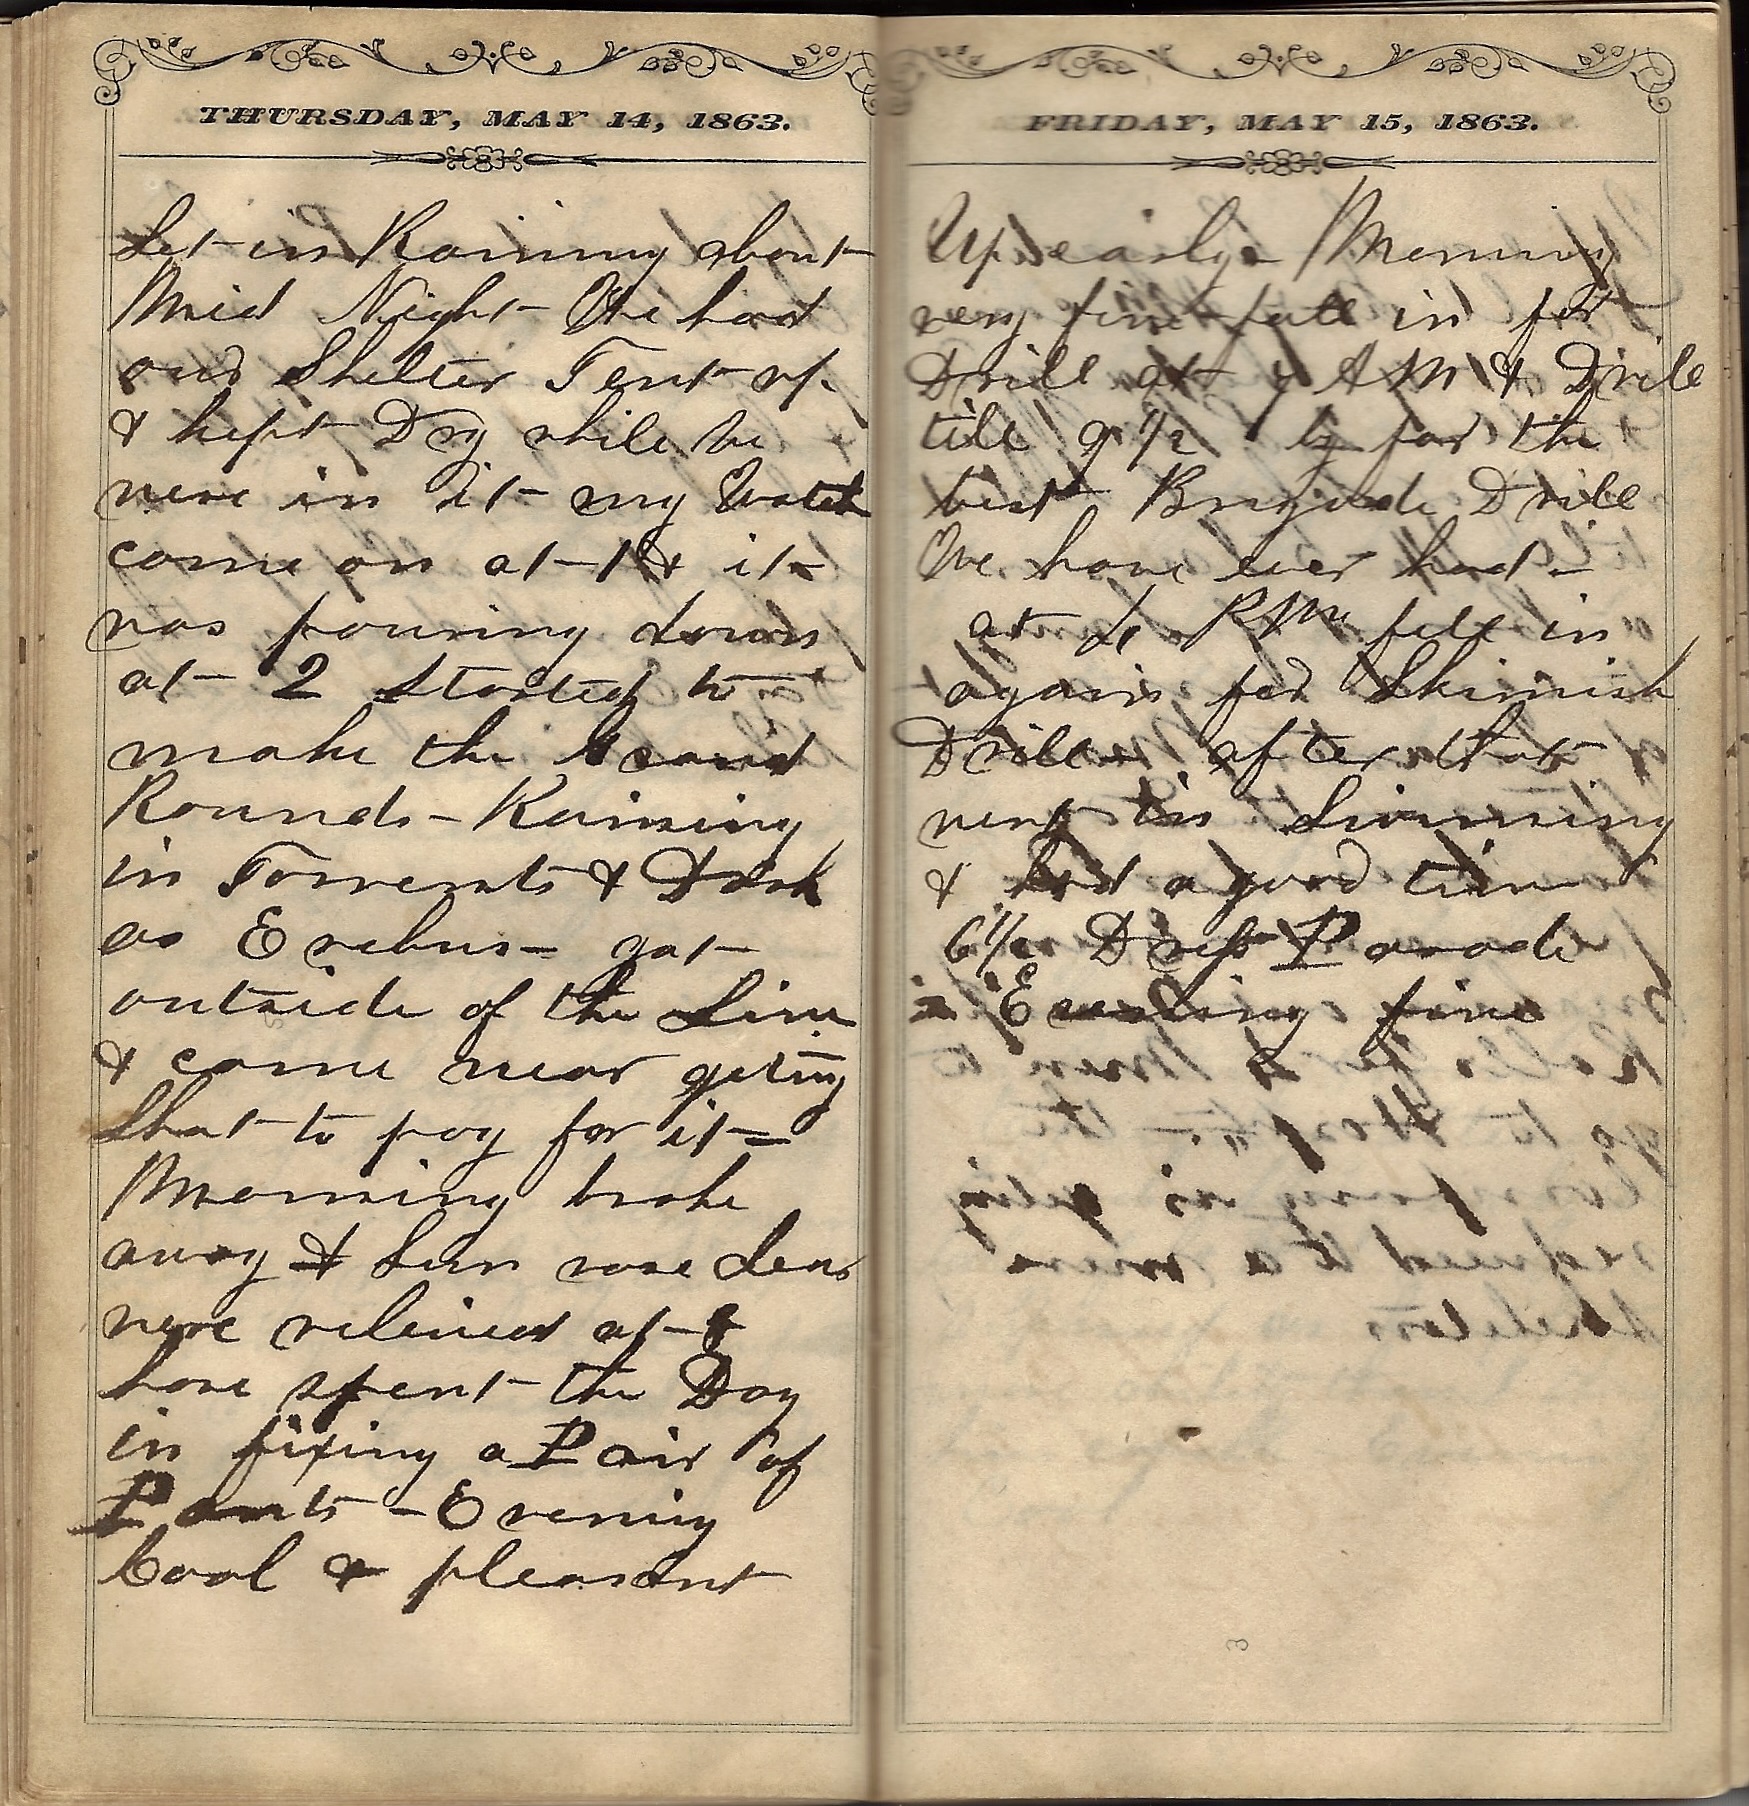 THURSDAY, MAY 14, 1863.
Set in Raining about
Mid Night - We had
our Shelter Tent up
& kept Dry while we
were in it - my Watch
come on at - 1 & it
was pouring down
at - 2 Started to
make the Grand
Rounds - Raining
in Torrents & Dark
as Erebus - got
outside of the Line
& came near geting
Shot to pay for it -
Morning broke
away & Sun rose clear
were relieved at - 8
have spent the Day
in fixing a Pair of
Pants - Evening
Cool & pleasant
FRIDAY, MAY 15, 1863.
Up early Morning
very fine fall in for
Drill at AM & Drill
till 9 1/2 by far the
best Brigade Drill
We have ever had -
at PM fell in
again for Skirmish
Drill - after that
went in Swimming
& had a good time
6 1/2 Dress Parade
Evening fine